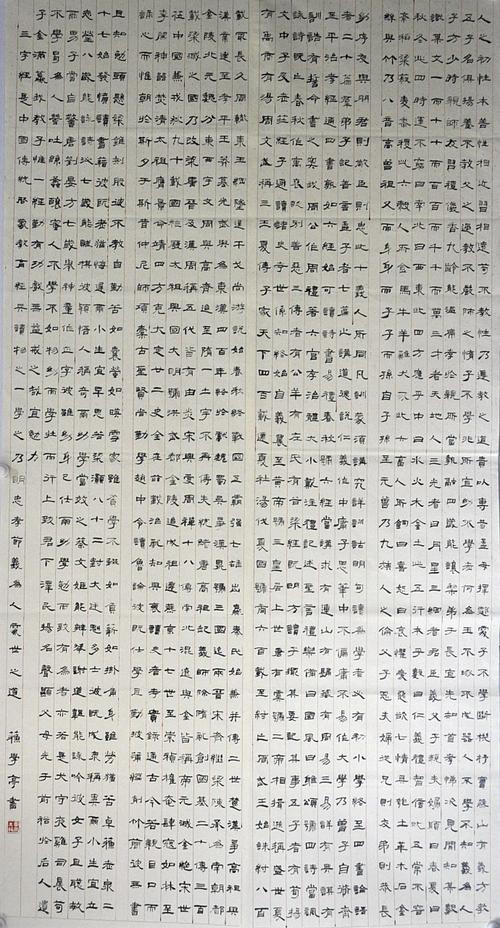 人之初性本善性相近習相遠苟不教性乃遷教之道貴以專昔孟母擇鄰處子不學斷機杼竇燕山有義方教
五子名俱揚養不教父之過教不嚴師之惰子不學非所宜幼不學老何為玉不琢不成器人不學不知義為人
子方少時親師友習禮儀香九齡能溫席孝於親所當執融四歲能讓梨弟於長宜先知首孝悌次見聞知某數
識某文一而十十而百百而千千而萬三才者天地人三光者日月星三綱者君臣義父子親夫婦順曰春夏曰
秋冬此四時運不窮曰南北曰西東此四方應乎中曰水火木金土此五行本乎數曰仁義禮智信此五常不容
紊稻粱菽麥黍稷此六穀人所食馬牛羊雞犬豕此六畜人所飼曰喜怒曰哀懼愛惡欲七情具匏土革木石金
絲與竹乃八音高曾祖父而身身而子子而孫自子孫至玄曾乃九族人之倫父子恩夫婦從兄則友弟則恭長
幼序友與朋君則敬臣則忠此十義人所同凡訓蒙須講究詳訓詁明句讀為學者必有初小學終至四書論語
者二十篇群弟子記善言孟子者七篇止講道德說仁義作中庸子思筆中不偏庸不易作大學乃曾子自修齊
至平治孝經通四書熟如六經始可讀詩書易禮春秋號六經當講求有連山有歸藏有周易三易詳有典謨有
訓誥有誓命書之奧我周公作周禮著六官存治體大小戴注禮記述聖言禮樂備曰國風曰雅頌號四詩當諷
詠詩既亡春秋作寓褒貶別善惡三傳者有公羊有左氏有穀梁經既明方讀子撮其要記其事五子者有荀揚
文中子及老莊經子通讀諸史考世系知終始自羲農至黃帝號三皇居上世唐有虞號二帝相揖遜稱盛世夏
有禹商有湯周文武稱三王夏傳子家天下四百載遷夏社湯伐夏國號商六百載至紂亡周武王始誅紂八百
載最長久周轍東王綱墜逞干戈尚游說始春秋終戰國五霸強七雄出嬴秦氏始兼并傳二世楚漢爭高祖興
漢業建至孝平王莽篡光武興為東漢四百年終於獻魏蜀吳爭漢鼎號三國迄兩晉宋齊繼梁陳承為南朝都
金陵北元魏分東西宇文周與高齊迨至隋一土宇不再傳失統緒唐高祖起義師除隋亂創國基二十傳三百
載梁滅之國乃改梁唐晉及漢周稱五代皆有由炎宋興受周禪十八傳南北混遼與金皆稱帝元滅金絕宋世
莅中國兼戎狄九十載國祚廢太祖興國大明號洪武都金陵迨成祖遷燕京十七世至崇禎權奄肆寇如林至
李闖神器焚清太祖膺景命靖四方克大定廿二史全在茲載治亂知興衰讀史者考實錄通古今若親目口而
誦心而惟朝於斯夕於斯昔仲尼師項橐古聖賢尚勤學趙中令讀魯論彼既仕學且勤披蒲編削竹簡彼無書
且知勉頭懸梁錐刺股彼不教自勤苦如囊螢如映雪家雖貧學不輟如負薪如掛角身雖勞猶苦卓蘇老泉二
十七始發憤讀書籍彼既老猶悔遲爾小生宜早思若梁灝八十二對大廷魁多士彼既成眾稱異爾小生宜立
志瑩八歲能詠詩泌七歲能賦棋彼穎悟人稱奇爾幼學當效之蔡文姬能辨琴謝道韞能詠吟彼女子且聰敏
爾男子當自警唐劉晏方七歲舉神童作正字彼雖幼身已仕爾幼學勉而致有為者亦若是犬守夜雞司晨苟
不學曷為人蠶吐絲蜂釀蜜人不學不如物幼而學壯而行上致君下澤民揚名聲顯父母光于前裕於後人遺
子金滿籯我教子惟一經勤有功戲無益戒之哉宜勉力
三字經是中國傳統啟蒙教育經典讀物之一學之乃明忠孝節義為人處世之道 蘇學亭書